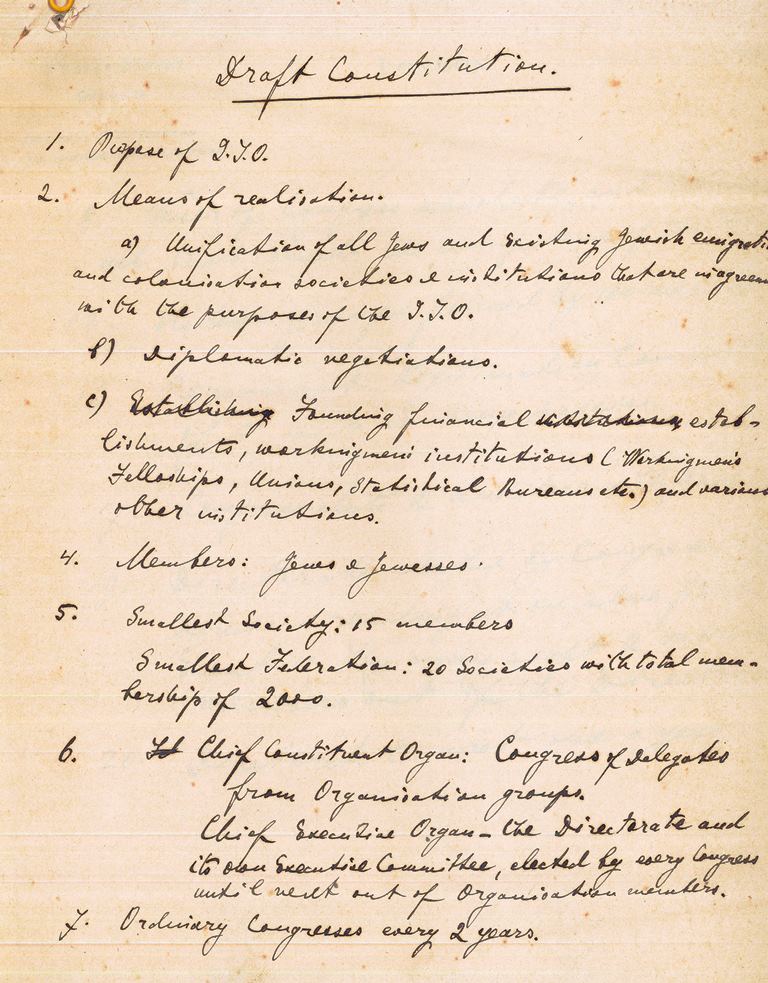 Draft Constitution.
1. Purpose of I.T.O.
2. Means of realisation.
a) Unification of all Jews and existing Jewish emigrati
and colonisation societies & institutions that are in agreem
with the purposes of the I.T.O.
b) Diplomatic negotiations.
c) Establishing Founding financial institutions, estab-
lishments, workingmens institutions (Workingmen's
Felloships, Unions, Statistical Bureaus etc.) and various
other institutions.
4. Members: Jews & Jewesses.
5. Smallest Society: 15 members
Smallest Federation: 20 Societies with total mem-
bership of 2000.
6. Chief Constituent Organ: Congress of Delegates
from Organisation groups.
Chief Executive Organ - the Directorate and
its own Executive Committee, elected by every Congress
until next out of Organisation members.
7. Ordinary Congresses every 2 years.